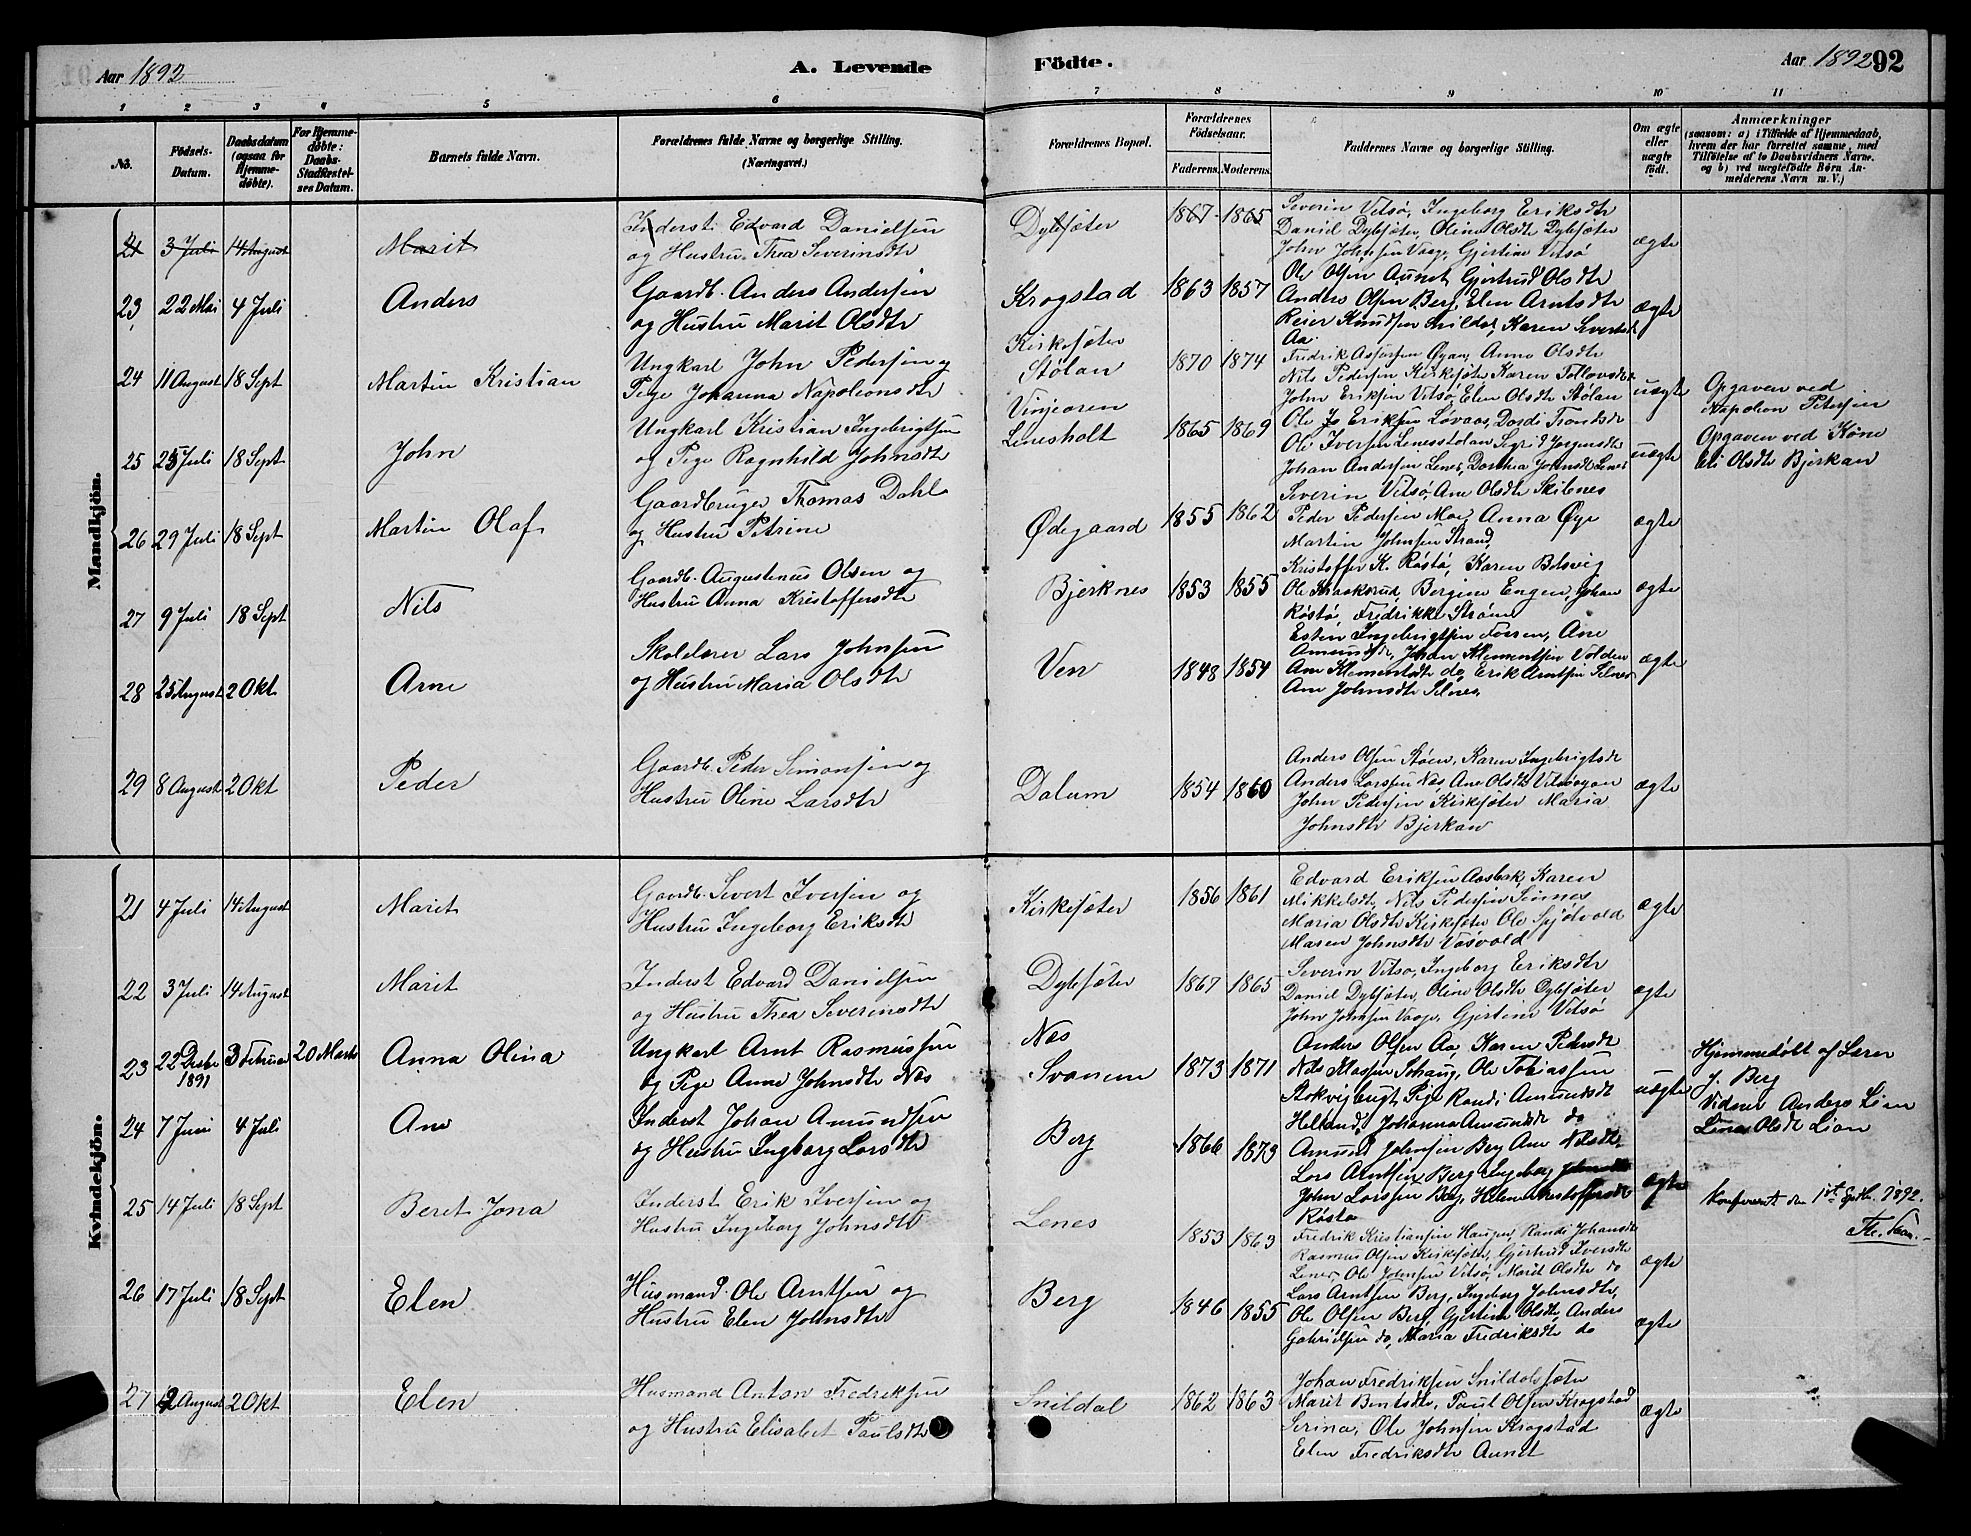 Aar 1892
A. Levende
Födte.
Aar 1892
92
1 2 3 4 5 6 7 8 9 10 11
No.
Födsels-Datum.
Daabsdatum (ogsaa for Hjemme-döbte).
For Hjemme-döbte: Daabs-Stadfæstel-ses Datum.
Barnets fulde Navn.
Forældrenes fulde Navne og borgerlige Stilling.
(Næringsvei.)
Forældrenes Bopæl.
Forældrenes Födselsaar.
Faderens. Moderens.
Faddernes Navne og borgerlige Stilling.
Om ægte eller uægte födt.
Anmærkninger
(saasom: a) i Tilfælde af Hjemmedaab, hvem der har forrettet samme, med Tilföielse af to Daabsvidners Navne. og b) ved uægtefödte Börn An-melderens Navn m. V.)
Mandkjön.
21 3 Juli 14 August Marit
Inderst Edvard Danielsen
og Hustru Thea Severinsdtr
Dybsæter 1867 1865
Severin Vitsø, Ingeborg Eriksdtr
Daniel Dybsæter, Oline Olsdtr Dybsæter
John Johnsen Vaage, Gjertine Vitsø
ægte
23 22 Mai 4 Juli Anders
Gaardb. Anders Andersen
og Hustru Marit Olsdtr
Krogstad 1863 1857
Ole Olsen Aunet, Gjertrud Olsdtr
Anders Olsen Berg, Elen Arntsdtr
Reier Knudsen Snildal, Karen Severtsdtr
Aa.
ægte
24 11 August 18 Sept Martin Kristian
Ungkarl John Pedersen og
Pige Johanna Napoleonsdtr
Kirkesæter
Stølan 1870 1874
Fredrik Assersen Øyan, Anne Olsdtr
Nils Pedersen Kirkesæter Karen Tollovsdtr
John Eriksen Vitsø, Elen Olsdtr Stølan
uægte
Opgaven ved
Napoleon Petersen
25 25 Juli 18 Sept John
Ungkarl Kristian Ingebrigtsen
og Pige Ragnhild Johnsdtr
Vinjeøren
Lenesholt 1865 1869
Ole Eriksen Løvaas, Dordi Trondsdtr
Ole Iversen Lenesstølan Sigri Jørgensdtr
Johan Andersen Lenes, Dorthea Johnsdtr Lenes
uægte
Opgaven ved Kone
Eli Olsdtr Bjerkan
26 29 Juli 18 Sept Martin Olaf
Gaardbruger Thomas Dahl
og Hustru Petrine
Ødegaard 1855 1862
Severin Vitsø, Ane Olsdtr Skilnes
Peder Pedersen Moe, Anna Øye
Martin Johnsen Strand,
ægte
27 9 Juli 18 Sept Nils
Gaardb. Augustenus Olsen og
Hustru Anna Kristoffersdtr
Bjerknes 1853 1855
Kristoffer K. Røstø, Karen Belsvig
Ole Kraakerud, Bergine Engen, Johan
Røstø, Fredrikke Strøm
ægte
28 25 August 2 Okt Arne
Skolelærer Lars Johnsen
og Hustru Maria Olsdtr
Ven 1848 1854
Esten Ingebrigtsen Fossen, Ane
Amundsdtr, Johan Klementsen Volden
Ane Klementsdtr do, Erik Arntsen Selnes
Ane Johnsdtr Selnes,
ægte
29 8 August 2 Okt Peder
Gaardb. Peder Simonsen og
Hustru Oline Larsdtr
Dalum 1854 1860
Anders Olsen Støen, Karen Ingebrigtsdtr
Anders Larsen Næs, Ane Olsdtr Vitsøøyan
John Pedersen Kirkesæter Maria
Johnsdtr Bjerkan
ægte
Kvindekjön.
21 4 Juli 14 August Marit
Gaardb. Sivert Iversen og
Hustru Ingeborg Eriksdtr
Kirkesæter 1856 1861
Edvard Eriksen Aasbak, Karen
Mikkelsdtr, Nils Pedersen Sinnes
Maria Olsdtr Kirkesæter Ole Spjølvold
Maren Johnsdtr Vasvold
ægte
22 3 Juli 14 August Marit
Inderst Edvard Danielsen
og Hustru Thea Severinsdtr
Dybsæter 1867 1865
Severin Vitsø, Ingeborg Eriksdtr
Daniel Dybsæter, Oline Olsdtr Dybsæter
John Johnsen Vaage, Gjertine Vitsø
ægte
23 22 Decbr 1891 3 Februar 20 Marts Anna Olina
Ungkarl Arnt Rasmussen
og Pige Anne Johnsdtr Næs
Næs
Svanem 1873 1871
Anders Olsen Aa, Karen Pedersdtr
Nils Klassen Sohaug, Ole Tobiassen
Stokvigbugt, Pige Randi Amundsdtr
Helland, Johanna Amundsdtr do
uægte
Hjemmedøbt af Lærer
J. Berg
Vidner Anders Lien
Lina Olsdtr Lian
24 7 Juni 4 Juli Ane
Inderst Johan Amundsen
og Hustru Ingborg Larsdtr
Berg 1866 1873
Amund Johnsen Berg Ane Nilsdtr
Lars Arntsen Berg Ingeborg Johnsdtr
John Larssen Berg, Helene Kristoffersdtr
Røstø
ægte
Konfereret den 1st Septbr. 1892.
25 14 Juli 18 Sept Beret Jona
Inderst Erik Iversen og
Hustru Ingeborg Johnsdtr
Lenes 1853 1863
Fredrik Kristiansen Haugen, Randi Johansdtr
Rasmus Olsen Kirkesæter, Gjertrud Iversdtr
Lenes, Ole Johnsen Vitsø, Marit Olsdtr do
ægte
26 17 Juli 18 Sept Elen
Husmand Ole Arntsen og
Hustru Elen Johnsdtr
Berg 1846 1855
Lars Arntsen Berg, Ingeborg Johnsdtr,
Ole Olsen Berg, Gjertine Olsdtr, Anders
Gabrielsen do, Maria Fredriksdtr do
ægte
27 12 August 2 Okt Elen
Husmand Anton Fredriksen
og Hustru Elisabet Paulsdtr
Snildal 1862 1863
Johan Fredriksen Snildalssæter
Marit Bentsdtr, Paul Olsen Krogstad
Serina, Ole Johnsen Krogstad
Elen Fredriksdtr Aunet
ægte